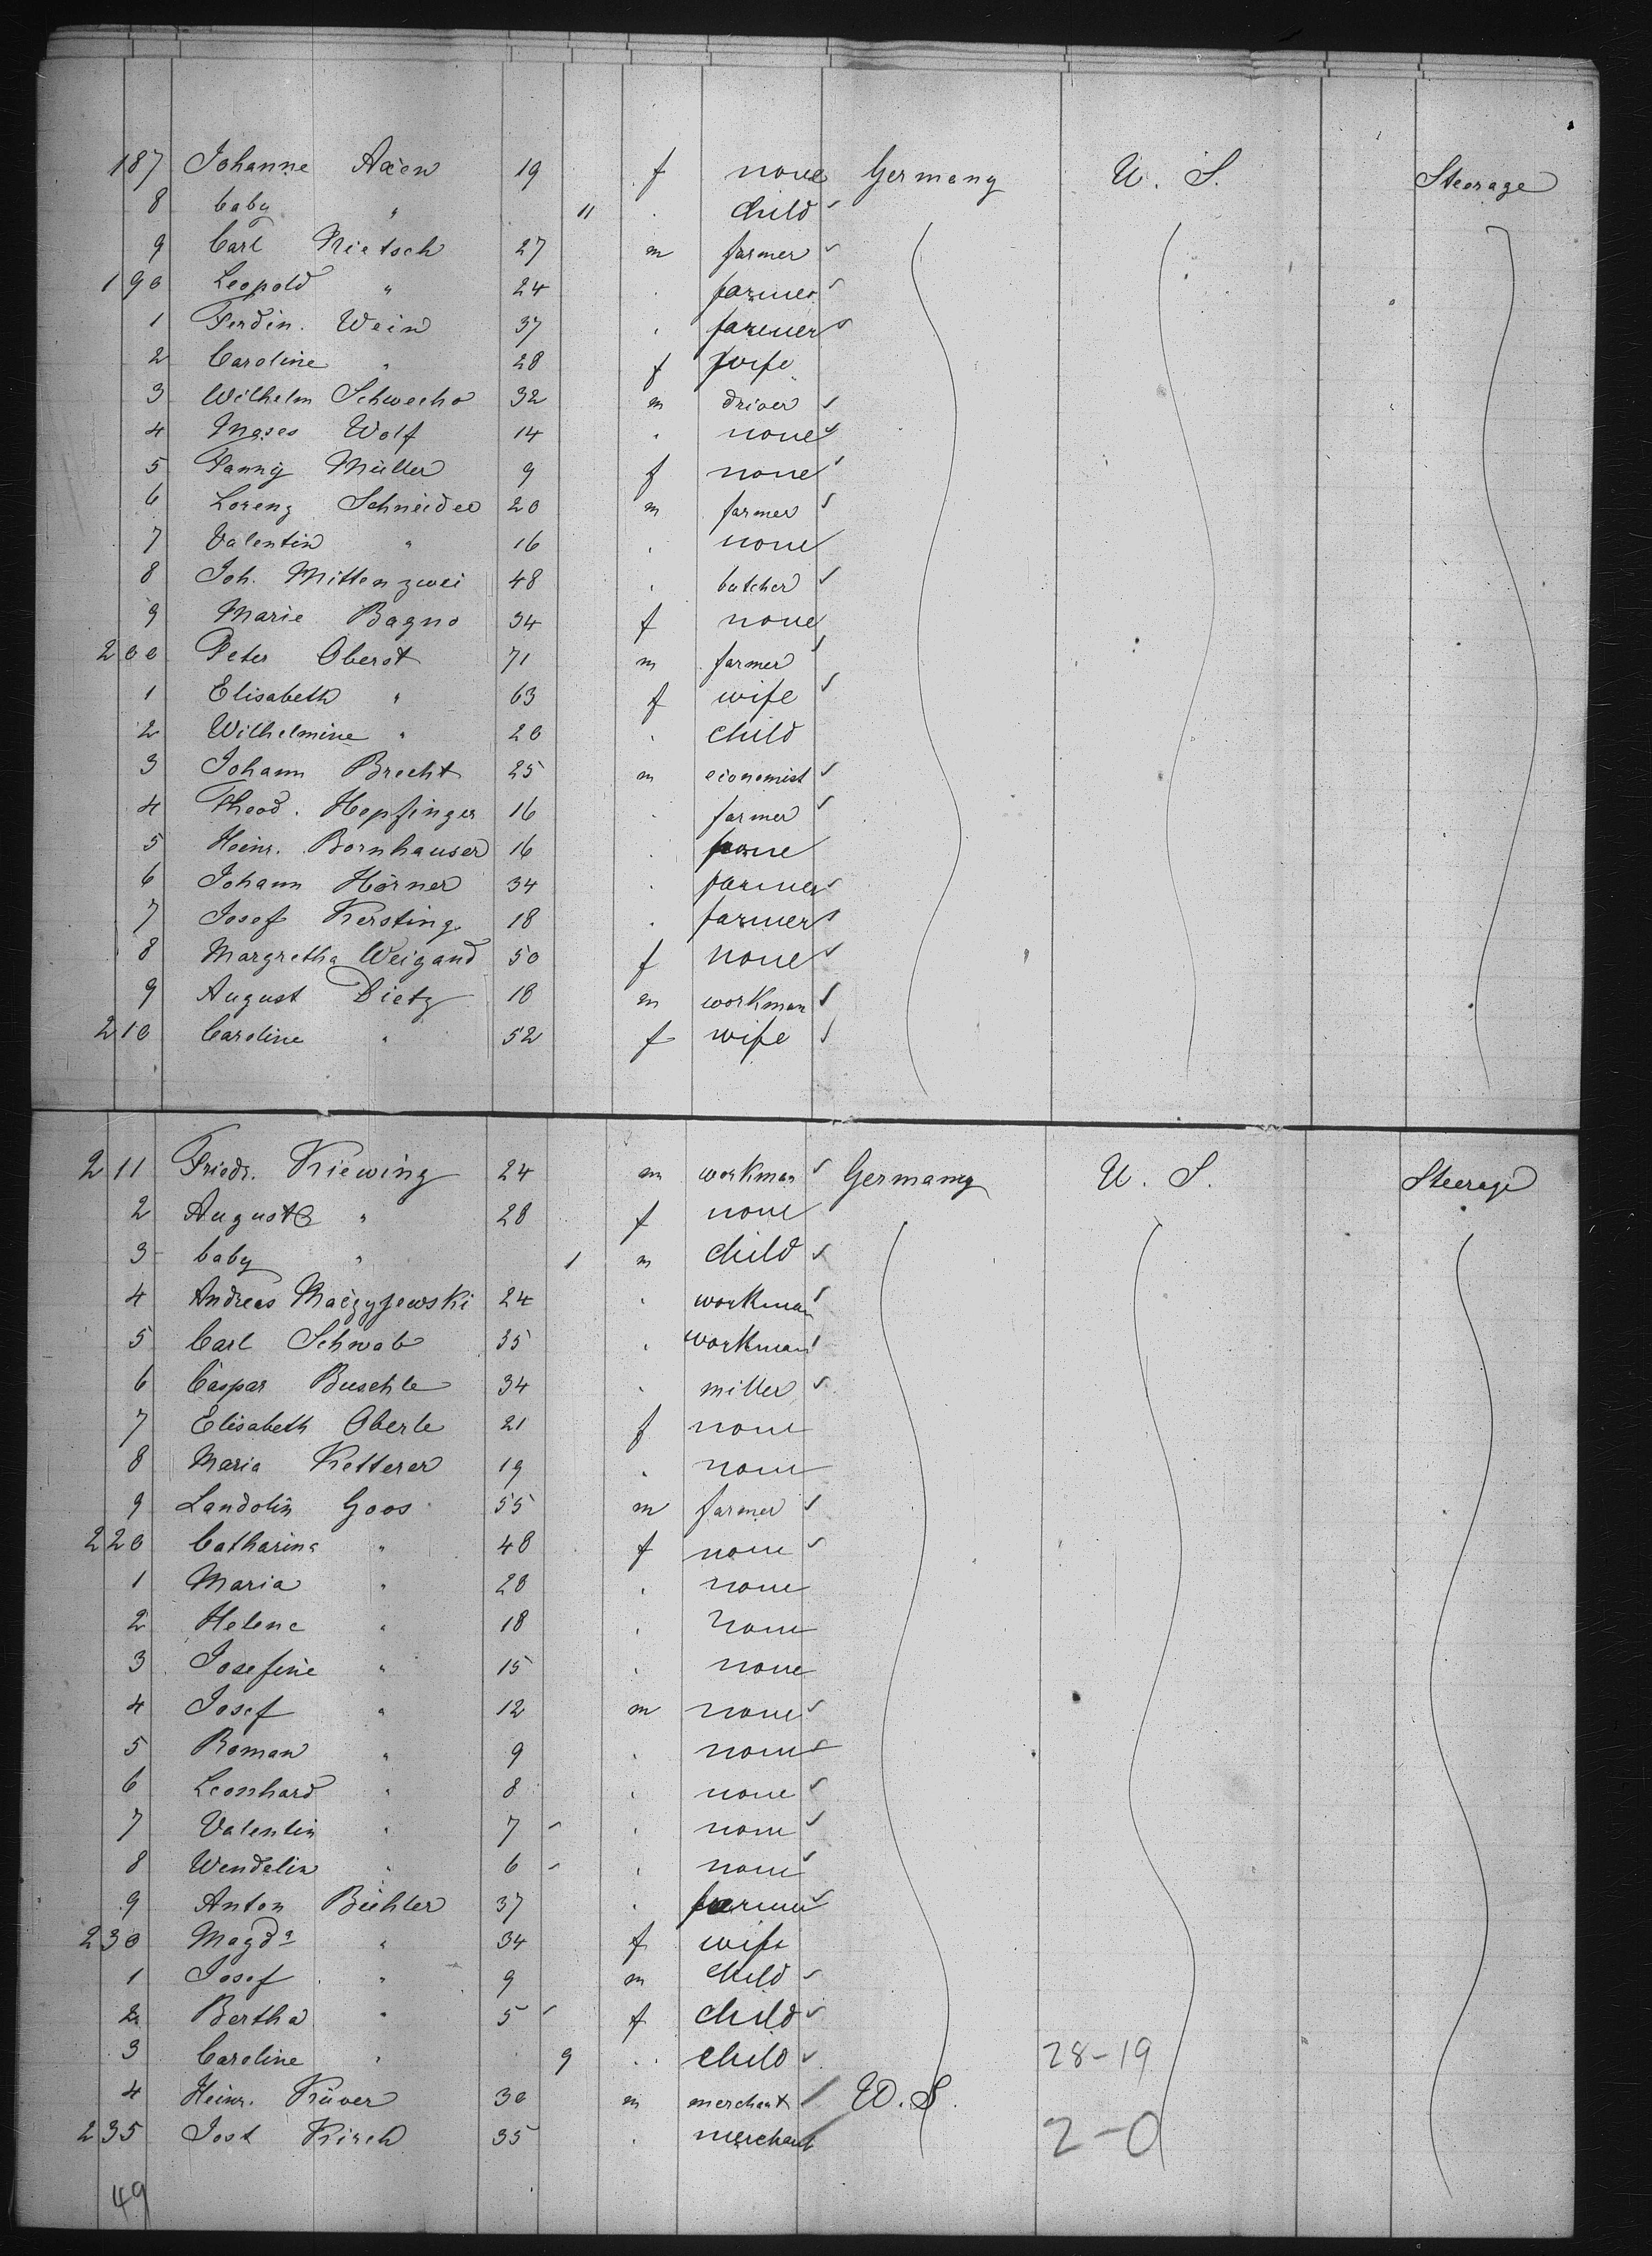 187 Johanne Axen 19 f none Germany U. S. Steerage
8 baby " 11 . child
9 Carl Nietsch 27 m farmer
190 Leopold " 24 . farmer
1 Ferdin. Wein 37 . farmer
2 Caroline " 28 f wife
3 Wilhelm 32 m driver
4 Moses Wolf 14 . none
5 Fanny Müller 9 f none
6 Lorenz Schneider 20 m farmer
7 Valentin " 16 . none
8 Joh. Mittenzwei 48 . butcher
9 Marie Bagno 34 f none
200 Peter Oberst 71 m farmer
1 Elisabeth " 63 f wife
2 Wilhelmine " 20 . child
3 Johann Brecht 25 m economist
4 Theod. Hepfinger 16 . farmer
5 Heinr. Bornhauser 16 . none
6 Johann Hörner 34 . farmer
7 Josef Kersting 18 . farmer
8 Margretha Weigand 50 f none
9 August Dietz 18 m workman
210 Caroline " 52 f wife
211 Friedr. Kiewing 24 m workman Germany U. S. Steerage
2 Augusta " 28 f none
3 baby " 1 m child
4 Andreas 24 . workman
5 Carl Schwab 35 . workman
6 Caspar Buschle 34 . miller
7 Elisabeth Oberle 21 f none
8 Maria Ketterer 19 . none
9 Landolin Goos 55 m farmer
220 Catharina " 48 f none
1 Maria " 20 . none
2 Helene " 18 . none
3 Josefine " 15 . none
4 Josef " 12 m none
5 Roman " 9 . none
6 Leonhard " 8 . none
7 Valentin " 7 . none
8 Wendelin " 6 . none
9 Anton Bühler 37 . farmer
230 Magda " 34 f wife
1 Josef " 9 m child
2 Bertha " 5 f child
3 Caroline " 9 . child 28-19
4 Heinr. Küver 30 m merchant U. S.
235 Jost Kirch 35 . merchant 2-0
49